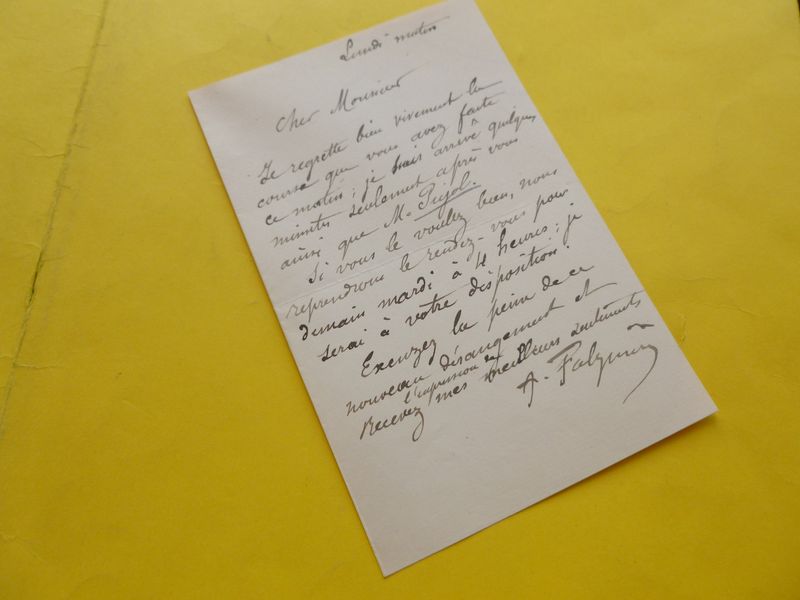 Lundi matin
Cher Monsieur
Je regrette bien vivement la
course que vous avez faite
ce matin ; je suis arrivé quelques
minutes seulement après vous
ainsi que Mr Pujol.
Si vous le voulez bien, nous
reprendrons le rendez-vous pour
demain mardi à 4 heures ; je
serai à votre disposition.
Excusez la peine de ce
nouveau dérangement et
l'expression de
Recevez mes meilleurs sentiments
A.